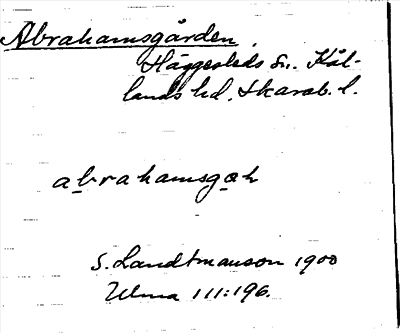 Abrahamsgården,
Häggesleds sn. Kål-
lands hd. Skarab. l.
abrahamsgah
S. Landtmanson 1900
Ulma 111:196.